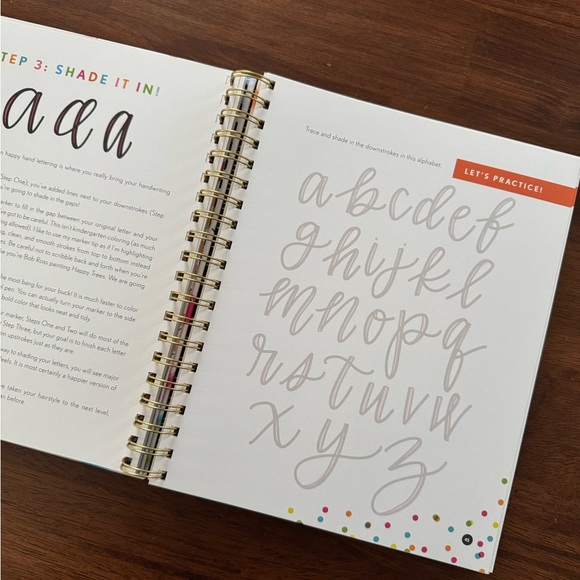 TEP 3: SHADE IT IN!
a a a
n happy hand lettering is where you really bring your handwriting
Step One), you've added lines next to your downstrokes (Step
you're going to shade in the gaps!
marker to fill in the gap between your original letter and your
got to be careful. This isn't kindergarten coloring (as much
ing allowed). I like to use my marker tip as if I'm highlighting
, clean, and smooth strokes from top to bottom instead
. Be careful not to scribble back and forth when you're
e you're Bob Ross painting Happy Trees. We are going
the most bang for your buck! It is much faster to color
l pen. You can actually turn your marker to the side
bold color that looks neat and tidy.
r marker, Steps One and Two will do most of the
Step Three, but your goal is to finish each letter
in upstrokes just as they are.
way to shading your letters, you will see major
feels. It is most certainly a happier version of
re taken your hairstyle to the next level,
en before.
Trace and shade in the downstrokes in this alphabet.
LET'S PRACTICE!
a b c d e f
g h i j k l
m n o p q
r s t u v w
x y z
45